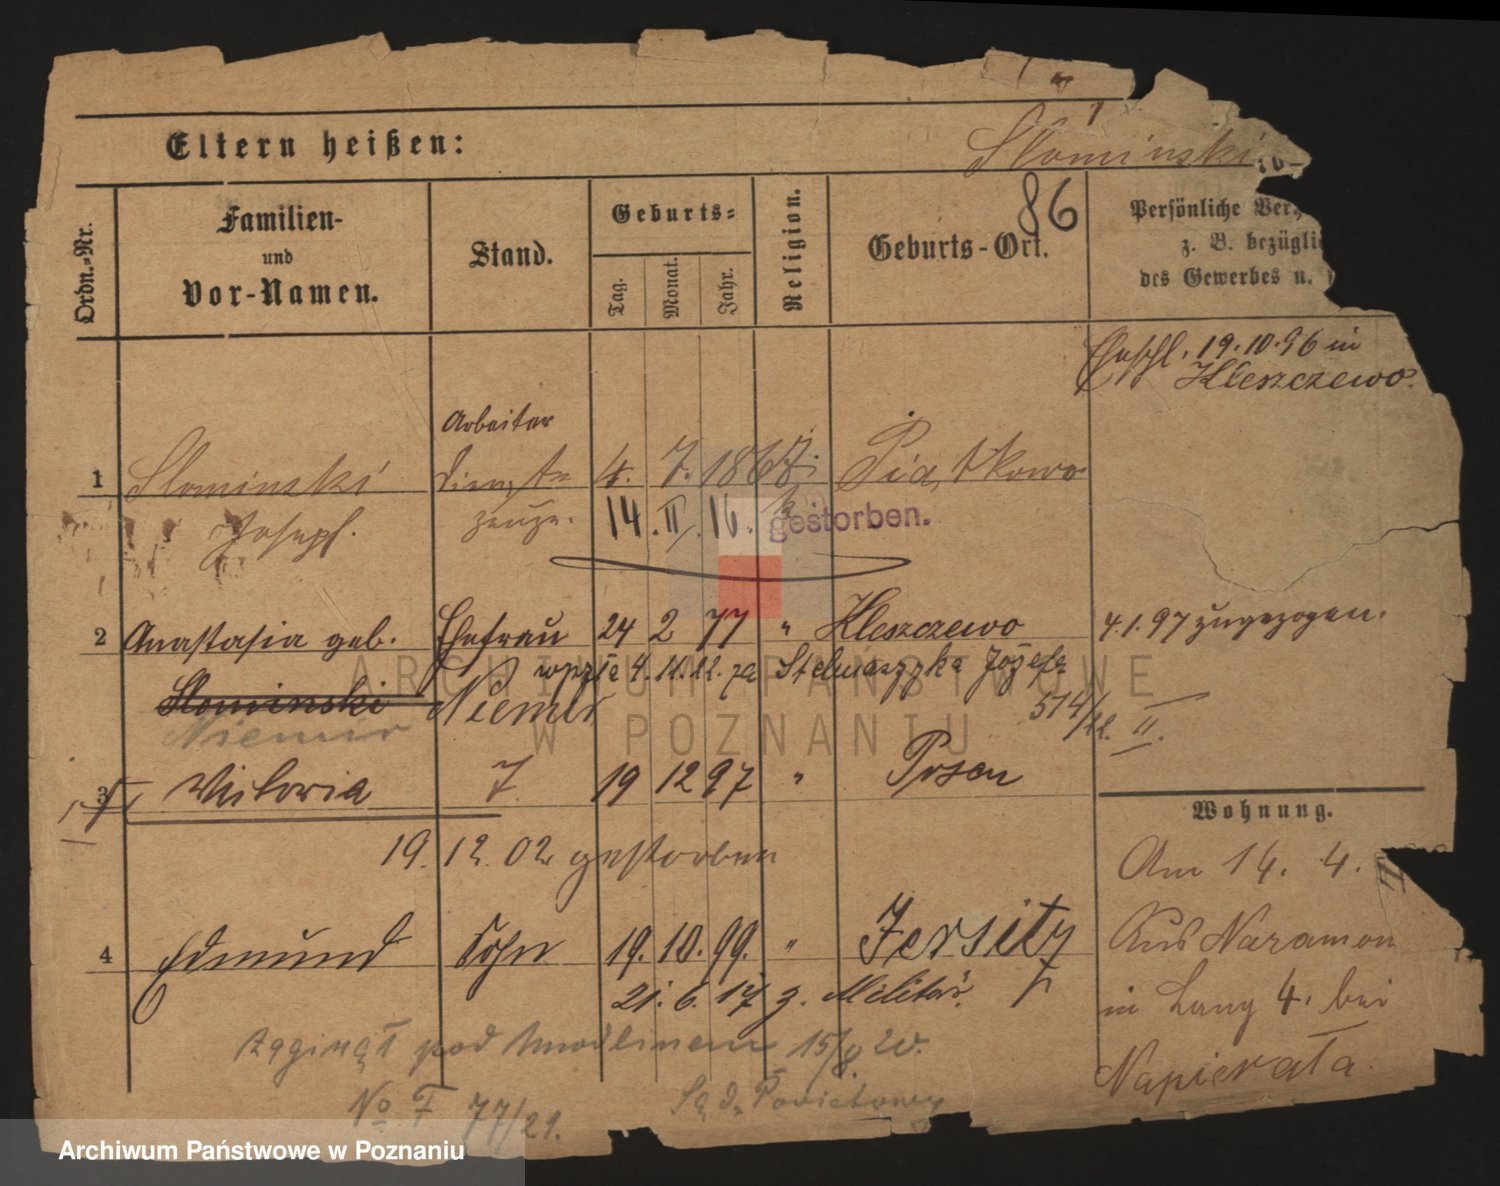 Eltern heißen:
Słominski
86
Ordn.-Nr.
Familien- und Vor-Namen.
Stand.
Geburts-
Tag.
Monat.
Jahr.
Religion.
Geburts-Ort.
Persönliche
z. B.
des Gewerbes u.
Eheschl. 19.10.96 in
Kleszczewo.
Arbeiter
1 Slominski 4. 7. 1867. k. Piątkowo
Josepf.
14. II. 16. gestorben.
2 Anastasia geb. Ehefrau 24 2 77 " Kleszczewo 4.1.97 zugezogen.
4.11.22. za Stelmaszyka Józefa
Slominski Niemir
Niemir
514/22. II.
3 Victoria T 19 12 97 " Posen
19. 12. 02 gestorben
4 Edmund Sohn 19. 10. 99. " Jersitz
21. 6. 17 z. Militär.
zaginął pod Modlinem 15/8. 20.
No F 77/21. Sąd Powiatowy
Wohnung.
Am 14. 4.
Aus Naramon
in Lang 4. bei
Napierała.
ARCHIWUM PAŃSTWOWE
W POZNANIU
Archiwum Państwowe w Poznaniu